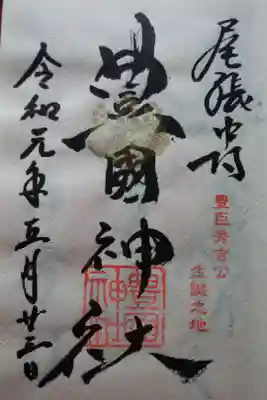 尾張中村
豊臣秀吉公
生誕之地
豊國神社
豊國
神社
令和元年五月廿三日